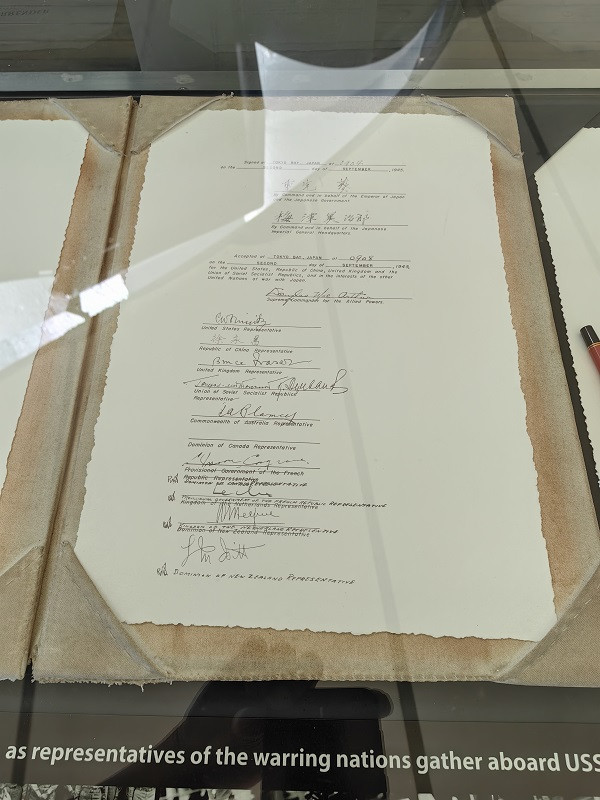 Signed at TOKYO BAY, JAPAN at 0904
on the SECOND day of SEPTEMBER, 1945.
By Command and in behalf of the Emperor of Japan
and the Japanese Government.
梅津美治郎
By Command and in behalf of the Japanese
Imperial General Headquarters.
Accepted at TOKYO BAY, JAPAN at 0908
on the SECOND day of SEPTEMBER, 1945,
for the United States, Republic of China, United Kingdom and the
Union of Soviet Socialist Republics, and in the interests of the other
United Nations at war with Japan.
Douglas MacArthur
Supreme Commander for the Allied Powers.
C W Nimitz
United States Representative
徐永昌
Republic of China Representative
Bruce Fraser
United Kingdom Representative
Union of Soviet Socialist Republics
Representative
T A Blamey
Commonwealth of Australia Representative
Dominion of Canada Representative
Provisional Government of the French
Republic Representative
DOMINION OF CANADA REPRESENTATIVE
Leclerc
PROVISIONAL GOVERNMENT OF THE FRENCH REPUBLIC REPRESENTATIVE
Kingdom of the Netherlands Representative
KINGDOM OF THE NETHERLANDS REPRESENTATIVE
Dominion of New Zealand Representative
L M Isitt
DOMINION OF NEW ZEALAND REPRESENTATIVE
as representatives of the warring nations gather aboard USS